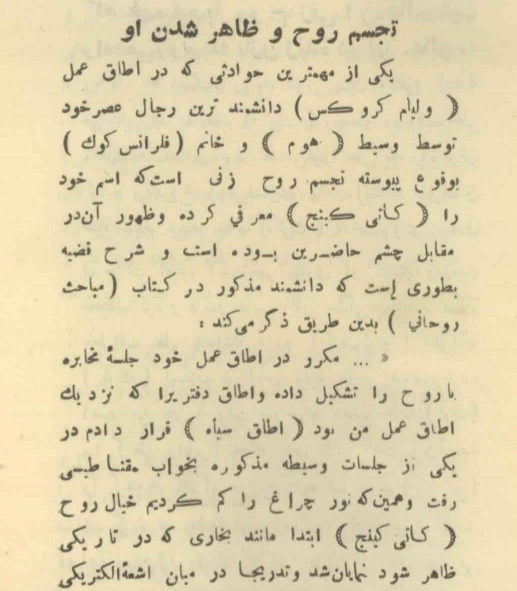 تجسیم روح و ظاهر شدن او
یکی از مهمترین حوادثی که در اطاق عمل
( ویلیام کروکس ) دانشمند ترین رجال عصرخود
توسط وسیط ( هوم ) و خانم ( فلرانس کوك )
بوقوع پیوسته تجسم روح زنی است‌که اسم خود
را ( کانی کینج ) معرفی کرده وظهور آن‌در
مقابل چشم حاضرین بوده است و شرح قضیه
بطوری است که دانشمند مذکور در کتاب ( مباحث
روحانی ) بدین طریق ذگر می‌کند :
« ... مکرر در اطاق عمل خود جلسهٔ مخابره
باروح را تشکیل داده واطاق دفتریرا که نزدیك
اطاق عمل من بود ( اطاق سیاه ) قرار دادم در
یکی از جلسات وسیطه مذکوره بخواب مقناطیسی
رفت وهمین‌که نور چراغ را کم کردیم خیال روح
( کانی کینج ) ابتدا مانند بخاری که در تاریکی
ظاهر شود نمایان‌شد وتدریجا در میان اشعهٔ‌الکتریکی